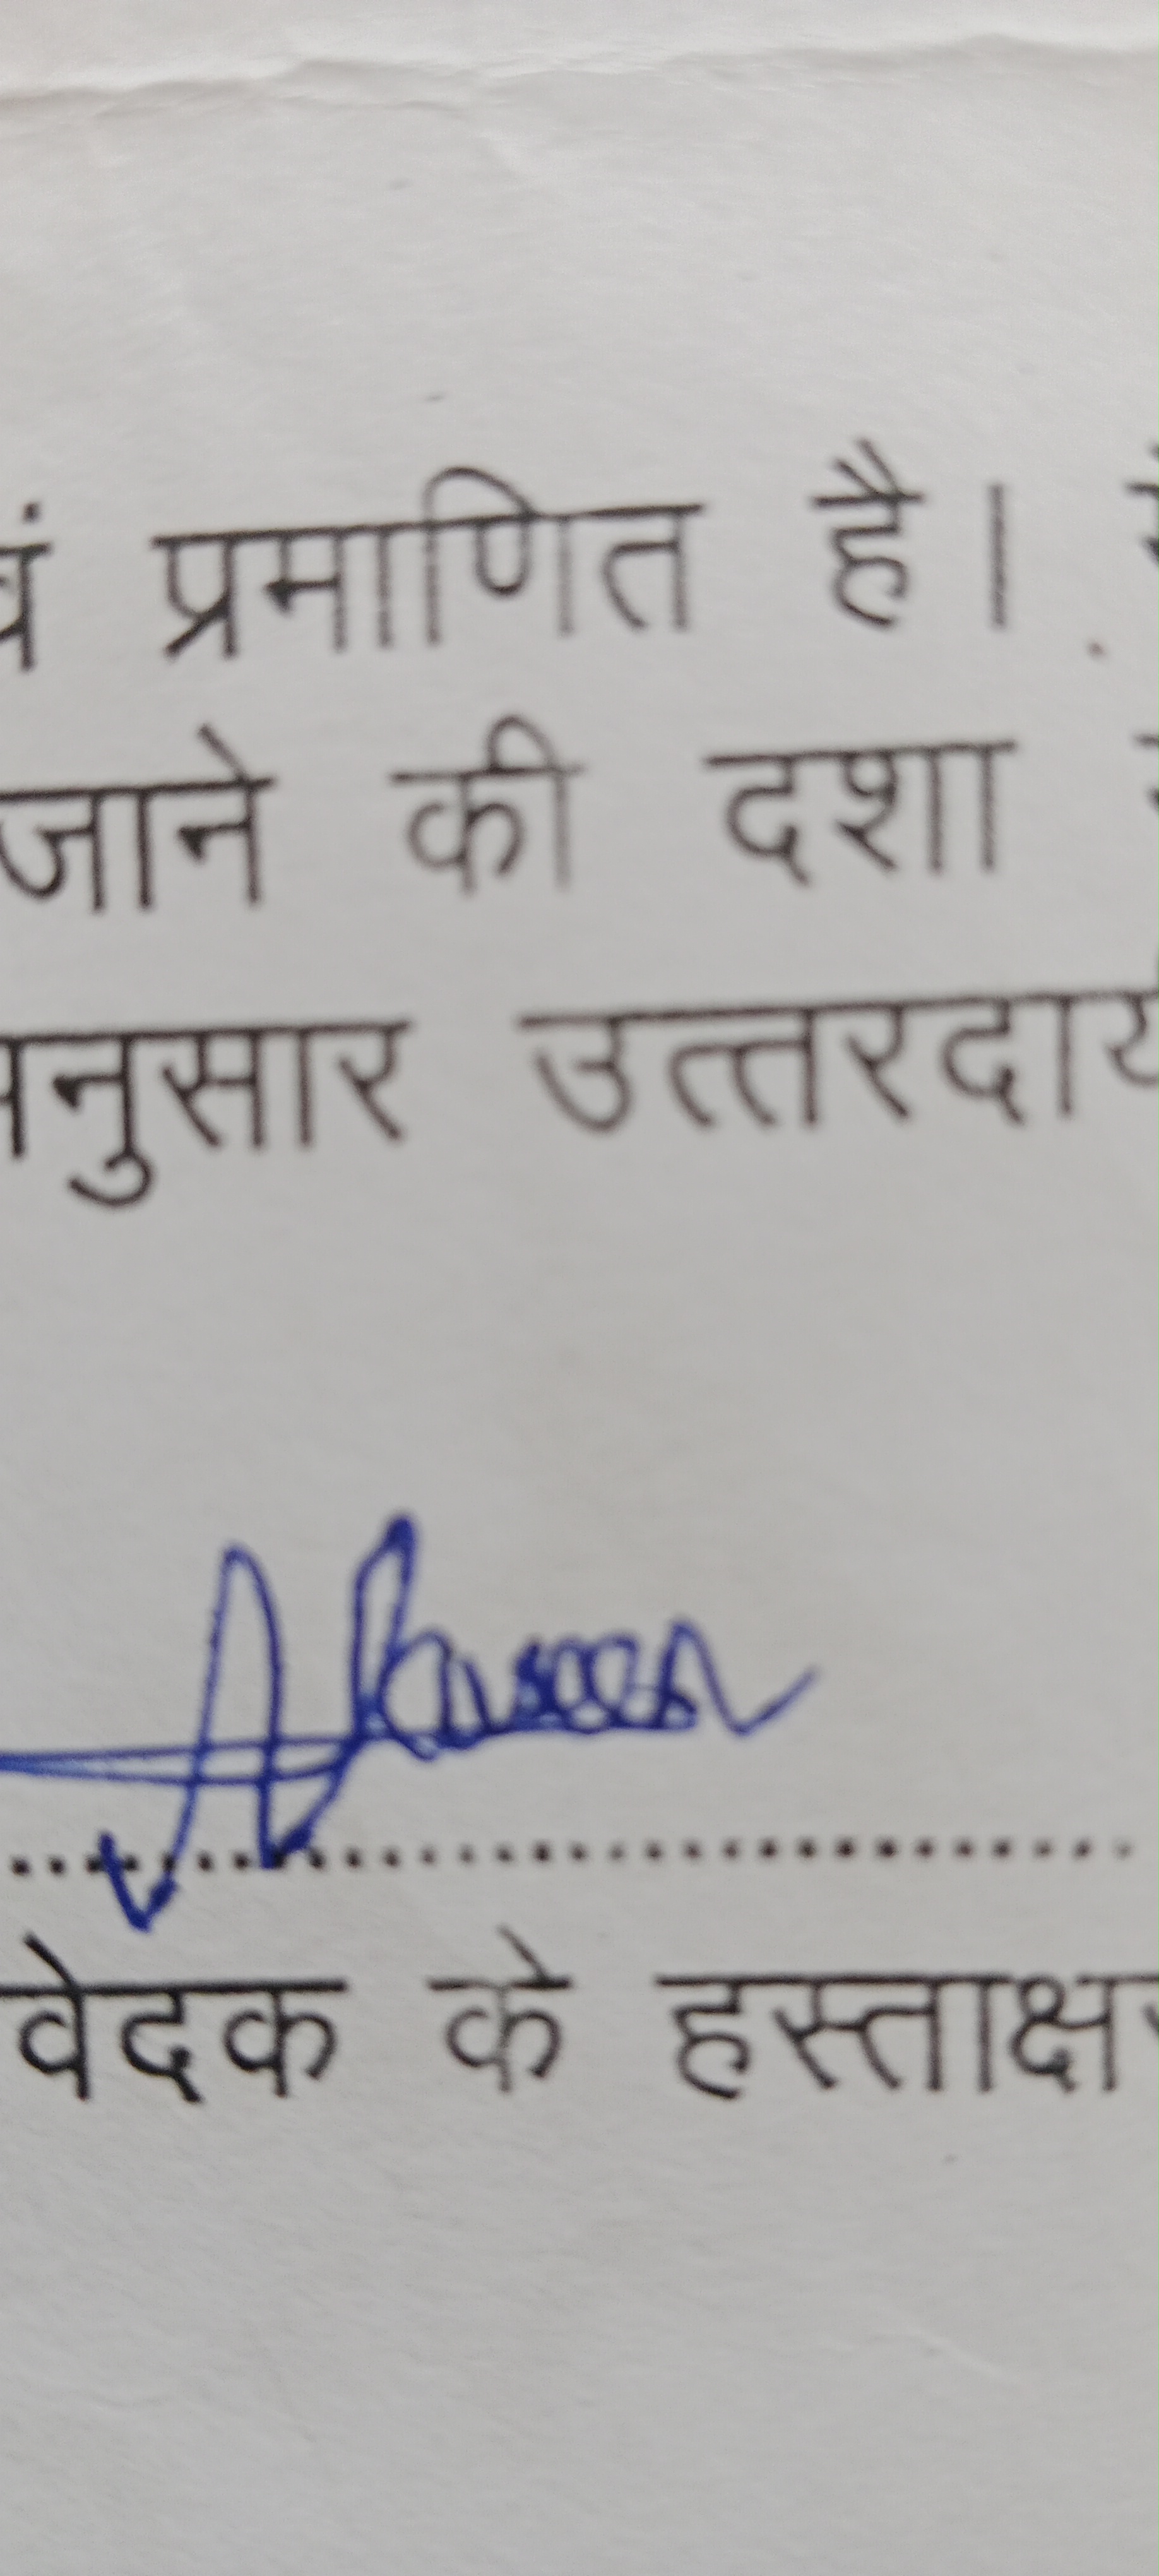 वं प्रमाणित है।
जाने की दशा
नुसार उत्तरदाय
वेदक के हस्ताक्षर